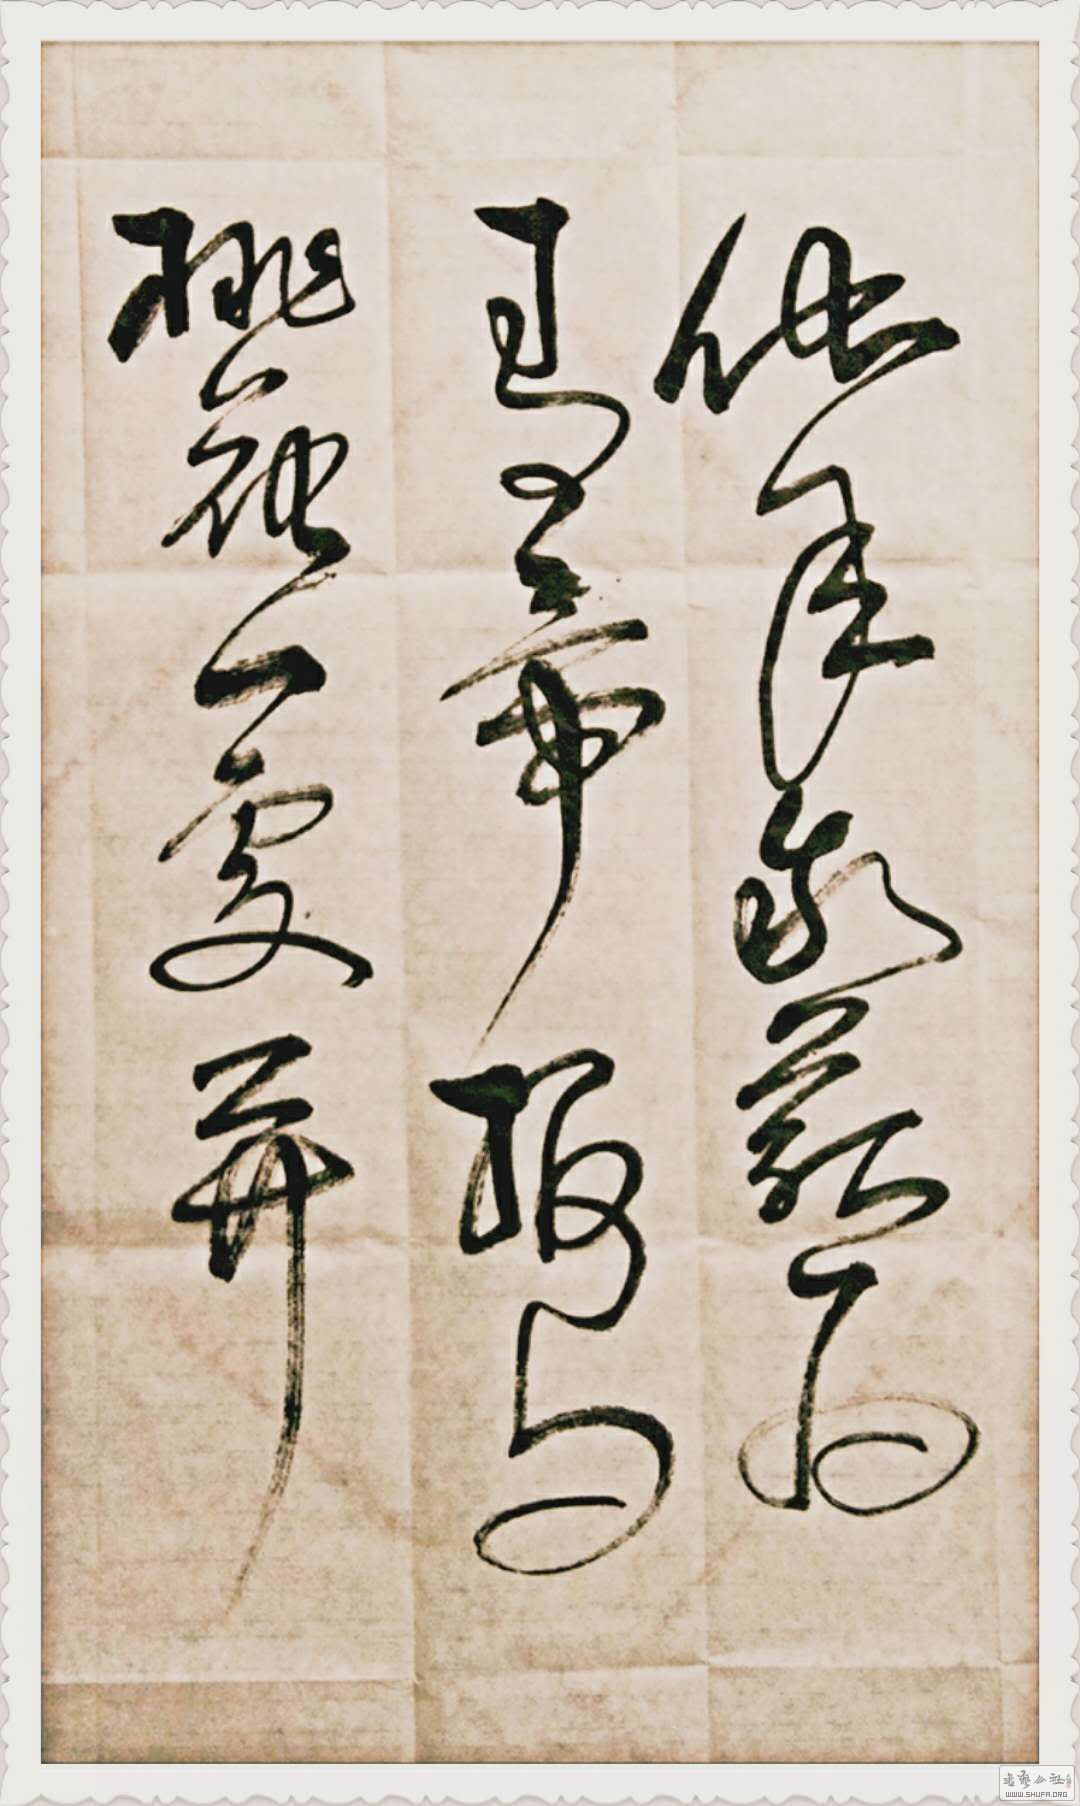 他年我若为
青帝报与
桃花一处开
书艺公社
WWW.SHUFA.ORG